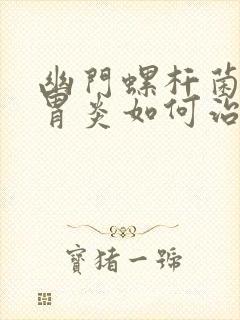 幽門螺杆菌
胃炎如何治
寶猪一號